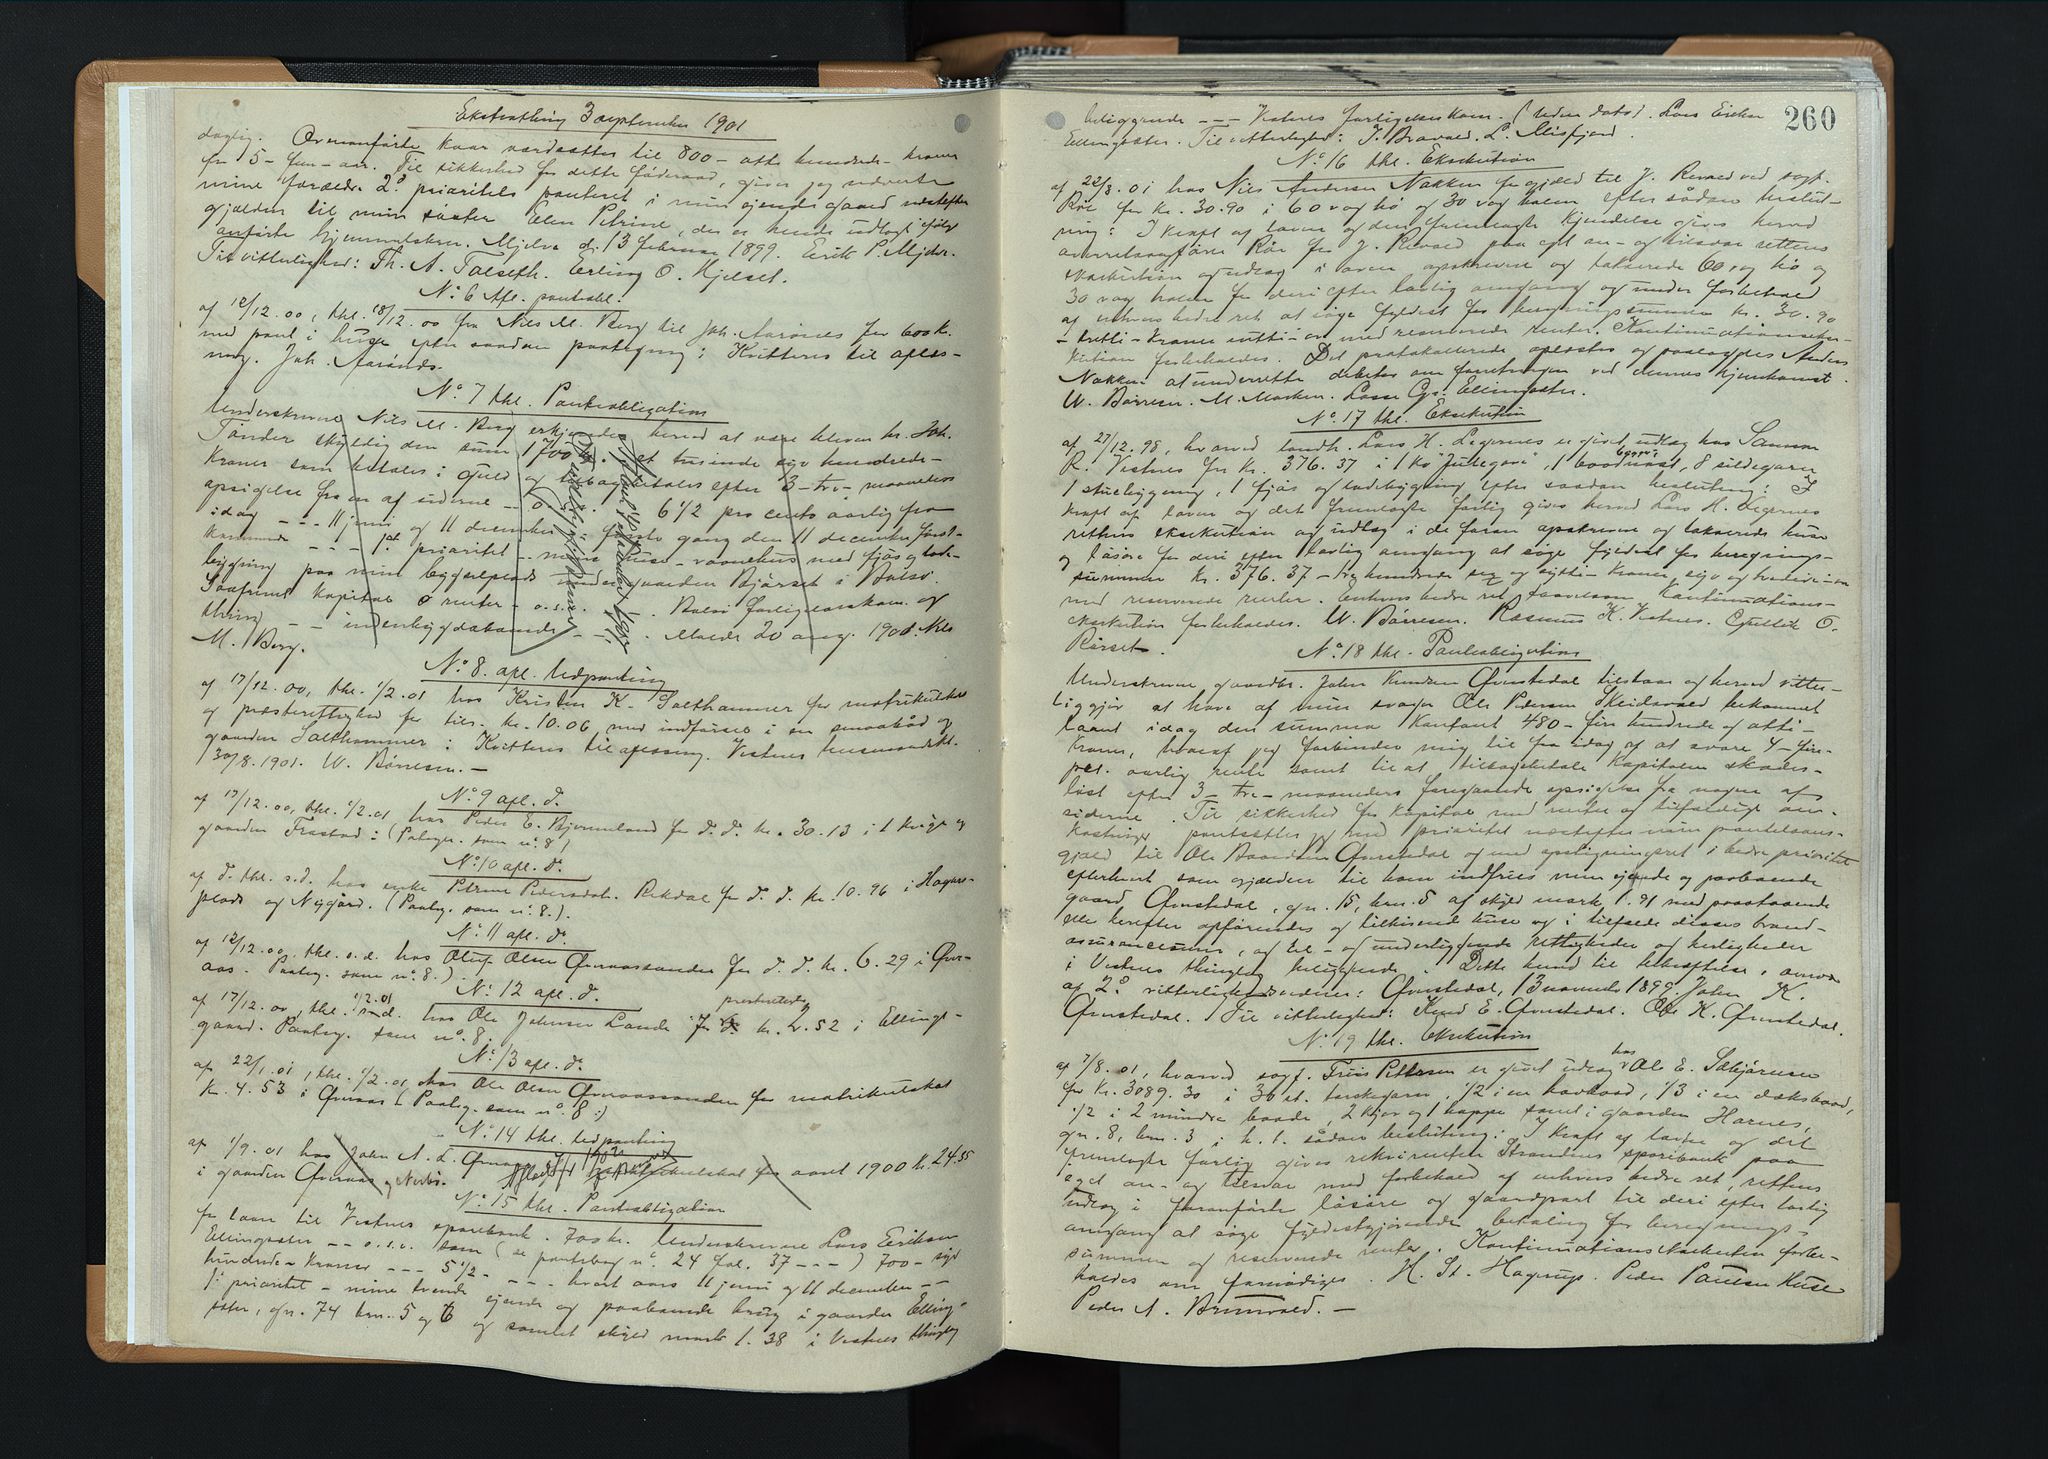 Ekstrathing 3 september 1901
daglig. Ovenanførte kaar værdsættes til 800 – otte hundrede – kroner
for 5 – fem – aar. Til sikkerhed for dette føderaad, giver jeg nævnte
mine forældre 2den prioritets panteret i min eiende gaard næstefter
gjælden til min søster Elen Petrine, der er hende udlagt ifølge
anførte hjemmelskom. Mjelve d. 13 februar 1899. Erik P. Mjelve.
Til vitterlighed: Th. A. Talseth. Erling O. Hjelset.
No. 6 Afl. panteobl.
af 12/12.00, thl. 18/12.00 fra Nils M. Berg til Joh. Aarønes for 600 kr.
med pant i huse efter saadan paategning: Kvitteres til aflæs-
ning. Joh. Aarønes.
No. 7 thl. Panteobligation
Underskrevne Nils M. Berg erkjender herved at være bleven hr. Joh.
Tønder skyldig den sum 1700 kr. et tusinde syv hundrede –
kroner som betales i guld og tilbagebetales efter 3 – tre – maaneders
opsigelse fra en af siderne – o.s.v. – 6 1/2 pro cento aarlig fra
idag – – – 11 juni og 11 december første gang den 11 december først-
kommende – – – 1st prioritet – mine huse – vaanehus med fjøs og lade-
bygning paa min byggeplads under gaarden Bjørset i Bolsø.
Saafremt kapital & renter – o.s.v. – Bolsø forligelseskom. og
thing – – indenbygdsboende – – . Molde 20 aug. 1901. Nils
M. Berg.
No. 8. afl. Udpanting
af 17/12.00, thl. 1/2.01 hos Kristen K. Salthammer for matrikulskat
og præsterettighed for tils. kr. 10.06 med indførsel i en smaabåd og
gaarden Salthammer: Kvitteres til aflæsning. Vestnes lensmandskt.
30/8.1901. W. Børresen. –
No. 9 afl. d.
af 17/12.00, thl. 1/2.01 hos Peder E. Bjermeland for d. d. kr. 30.13 i 1 kvige og
gaarden Frostad: (Paategn. som no. 8)
No. 10 afl. d.
af d. thl. s.d. hos enke Petrine Pedersdat. Rekdal for d. d. kr. 10.96 i Hagars-
plads og Nygård. (Paateg. som no. 8.).
No. 11 afl. d.
af 12/12.00, thl. s.d. hos Oluf Olsen Øveraassanden for d. d. kr. 6.29 i Øver-
aas. Paateg. som no. 8.)
No. 12 afl. d.
af 17/12.00, thl. 1/2.01 hos Ole Johnsen Lande for præsterettigh. kr. 2.52 i Ellings-
gaard. Paateg. som no. 8.
No. 13 afl. d.
af 22/1.01, thl. 1/2.01, hos Ole Olsen Øveraassanden for matrikulskat
kr. 4.53 i Øveraas (Paateg. som no. 8.)
No. 14 thl. Udpanting
af 1/9.01 hos John A. L. Øveraas for matrikulskat for aaret 1900 kr. 24.55
i gaarden Øveraas og Nerbø.
No. 15 thl. Panteobligation
for laan til Vestnes sparebank. 700 kr. Underskrevne Lars Eriksen
Ellingsæter – – o.s.v. som (se pantebog no. 24 fol. 37 – – –) 700 – syv
hundrede – kroner – – – 5 1/2 – – – – hvert aars 11 juni og 11 december – –
1. prioritet – mine tvende eiende og paaboende brug i gaarden Elling-
sæter, gn. 74 brn. 5 og 6 og samlet skyld mark 1.38 i Vestnes thinglag
260
beliggende – – – Vestnes forligelseskom. (Uden dato). Lars Eriksen
Ellingsæter. Til vitterlighed: J. Brovold. L. Misfjord.
No. 16 thl. Eksekution
af 22/8.01 hos Nils Andersen Nakken for gjæld til J. Revold ved sagf.
Röe for kr. 30.90 i 60 vog hö og 30 vog halm efter sådan beslut-
ning: I kraft af loven og den fremlagte kjendelse gives herved
overretssagfører Röe for J. Revold paa eget an- og tilsvar rettens
exekution og udlæg i oven opskrevne og takserede 60 vog hö og
30 vog halm for deri efter lovlig omgang og under forbehold
af enhvers bedre ret at søge fyldest for beregningssummen kr. 30.90
– tretti – kroner nitti – øre med reserverede renter. Kontinuationsekse-
kution forbeholdes. Det protokollerede oplæstes og paalagdes Anders
Nakken at underrette debitor om forretningen ved dennes hjemkomst.
W. Børresen. M. Morken. Lasse Gj. Ellingsæter.
No. 17 thl. Eksekution
af 27/12.98, hvorved landh. Lars H. Legernes er givet udlæg hos Samson
R. Vestnes for kr. 376.37 i 1 ko "Julegave", 1 baadnøst, 8 sildegarn
1 stuebygning, 1 fjøs og ladebygning efter saadan beslutning: I
kraft af loven og det fremlagte forlig gives herved Lars H. Legernes
rettens eksekution og udlæg i de foran opskrevne og takserede huse
og løsøre for deri efter lovlig omgang at søge fyldest for beregnings-
summen kr. 376.37 – tre hundrede sex og sytti – kroner, syv og tredive – øre
med reserverede renter. Enhvers bedre ret saavelsom kontinuations-
eksekution forbeholdes. W. Børresen. Rasmus K. Vestnes. O.
Rørset.
No. 18 thl. Panteobligation
Underskrevne gaardbr. John Knudsen Øvestedal tilstaar og herved vitter-
liggjør at have af min svoger Ole Pedersen Skeidsvold bekommet
laant idag den summa kontant 480 – fire hundrede og otti –
kroner, hvoraf jeg forbinder mig til fra idag af at svare 4 – fire –
pct. aarlig rente samt til at tilbagebetale kapitalen skades-
løst efter 3 – tre – maaneders foregaaende opsigelse fra nogen af
siderne. Til sikkerhed for kapital med renter og tilfældige om-
kostninger pantsætter jeg med prioritet næstefter min pantelaans-
gjæld til Ole Øvestedal og med opsigningsret i bedre prioritet
efterhvert som gjælden til ham indfries min eiende og paaboende
gaard Øvestedal, gn. 15, brn. 5 af skyld mark 1.91 med paastaaende
eller herefter opførendes og tilhørende huse og i tilfælde disses brand-
assurancesummer, og til- og underliggende rettigheder og herligheder
i Vestnes thinglag beliggende. Dette hermed til bekræftelse, overvær
af 2de vitterlighedsvidner: Øvestedal, 13 november 1899. John K.
Øvestedal. Til vitterlighed: Knud E. Øvestedal. Ole K. Øvestedal.
No. 19 thl. Eksekution
af 7/8.01, hvorved sagf. Friis Pettersen er givet udlæg hos Ole E. Sæbjørnsen
for kr. 3089.30 i 30 st. torskegarn, 1/2 i en havbaad, 1/3 i en dæksbaad,
1/2 i 2 mindre baade, 2 kjør og 1 hoppe samt i gaarden Harnes,
gn. 8, brn. 3 i h. t. sådan beslutning: I kraft af loven og det
fremlagte forlig gives rekvirenten Strandens sparebank paa
eget an- og tilsvar med forbehold af enhvers bedre ret, rettens
udlæg i foranførte løsøre og gaardpart til deri efter lovlig
omgang at søge fyldestgjørende betaling for beregnings-
summen og reserverede renter. Kontinuationsexekution forbe-
holdes om fornødiges. H. St. Hagerup. Peder Paulsen Huse
Peder A. Brunvold. –